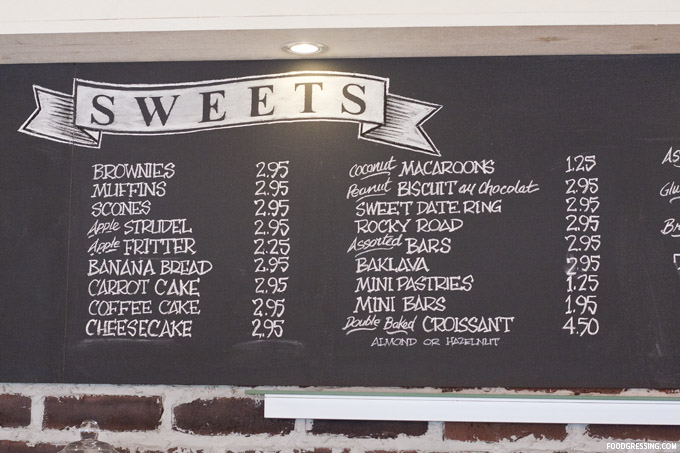 SWEETS
BROWNIES 2.95
MUFFINS 2.95
SCONES 2.95
Apple STRUDEL 2.95
Apple FRITTER 2.25
BANANA BREAD 2.95
CARROT CAKE 2.95
COFFEE CAKE 2.95
CHEESECAKE 2.95
Coconut MACAROONS 1.25
Peanut BISCUIT au Chocolat 2.95
SWEET DATE RING 2.95
ROCKY ROAD 2.95
Assorted BARS 2.95
BAKLAVA 2.95
MINI PASTRIES 1.25
MINI BARS 1.95
Double Baked CROISSANT 4.50
ALMOND OR HAZELNUT
FOODGRESSING.COM